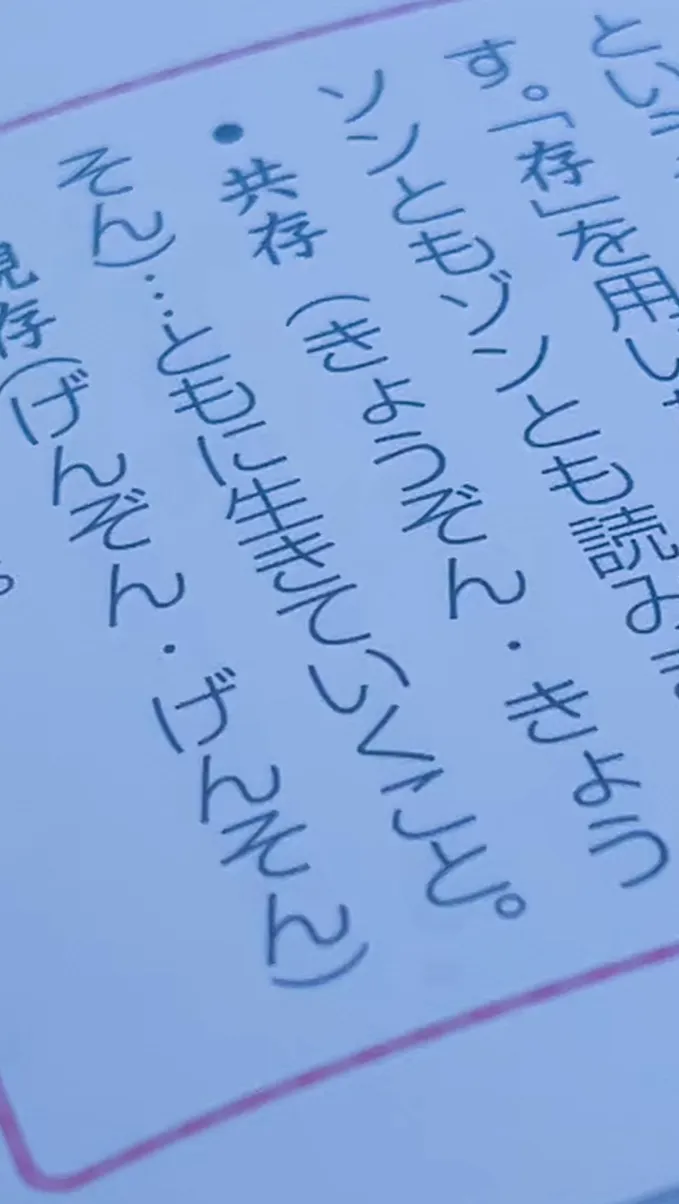 とい
す。「存」を用い
ソンともゾンとも読み
●共存（きょうぞん・きょう
そん）…ともに生きていくこと。
現存（げんぞん・げんそん）
。